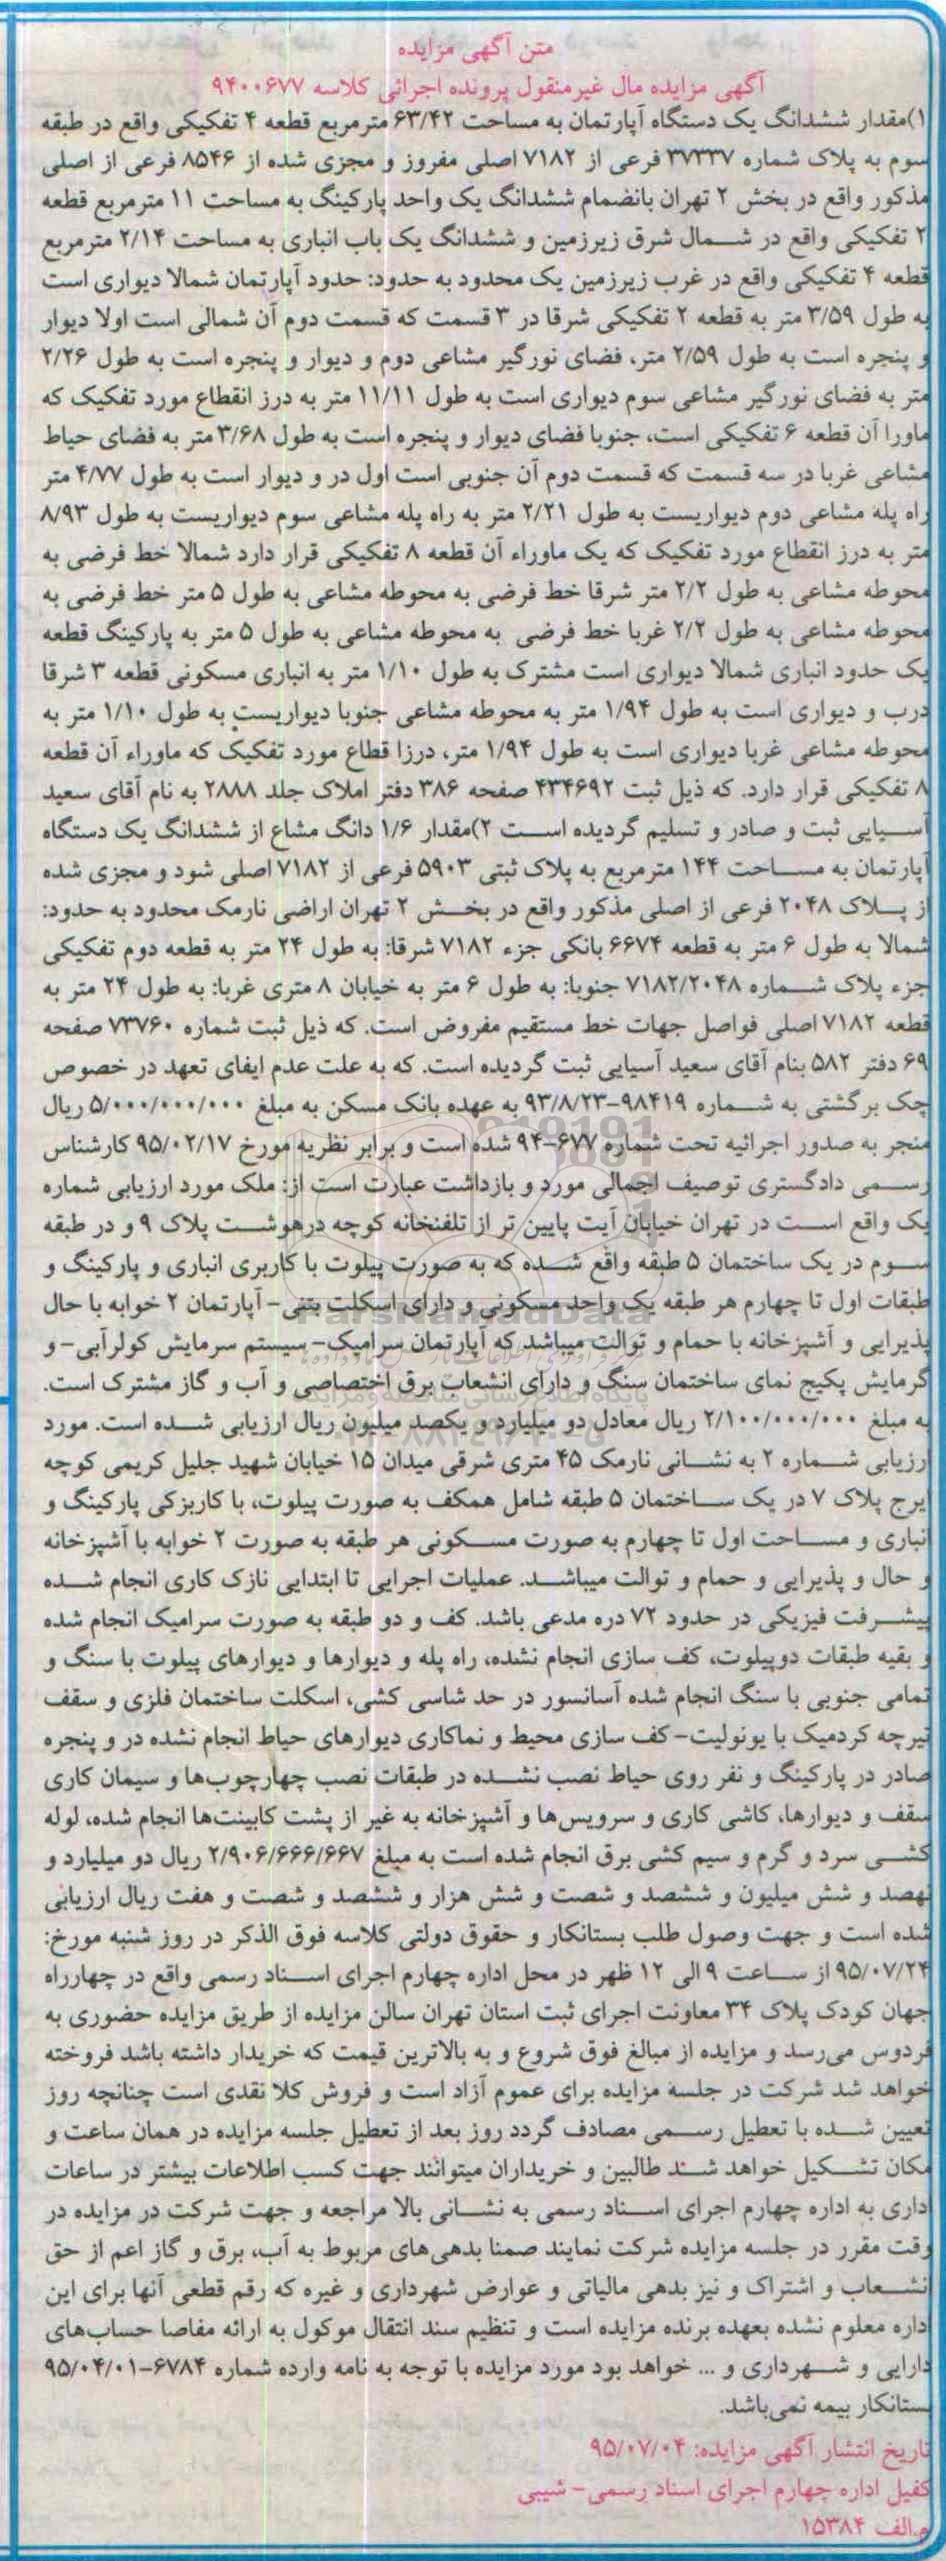 متن آگهی مزایده
آگهی مزایده مال غیرمنقول پرونده اجرائی کلاسه ۹۴۰۰۶۷۷
۱)مقدار ششدانگ یک دستگاه آپارتمان به مساحت ۶۳/۴۲ مترمربع قطعه ۴ تفکیکی واقع در طبقه
سوم به پلاک شماره ۳۷۳۳۷ فرعی از ۷۱۸۲ اصلی مفروز و مجزی شده از ۸۵۴۶ فرعی از اصلی
مذکور واقع در بخش ۲ تهران بانضمام ششدانگ یک واحد پارکینگ به مساحت ۱۱ مترمربع قطعه
۲ تفکیکی واقع در شمال شرق زیرزمین و ششدانگ یک باب انباری به مساحت ۲/۱۴ مترمربع
قطعه ۴ تفکیکی واقع در غرب زیرزمین یک محدود به حدود: حدود آپارتمان شمالا دیواری است
به طول ۳/۵۹ متر به قطعه ۲ تفکیکی شرقا در ۳ قسمت که قسمت دوم آن شمالی است اولا دیوار
و پنجره است به طول ۲/۵۹ متر، فضای نورگیر مشاعی دوم و دیوار و پنجره است به طول ۲/۲۶
متر به فضای نورگیر مشاعی سوم دیواری است به طول ۱۱/۱۱ متر به درز انقطاع مورد تفکیک که
ماورا آن قطعه ۶ تفکیکی است، جنوبا فضای دیوار و پنجره است به طول ۳/۶۸ متر به فضای حیاط
مشاعی غربا در سه قسمت که قسمت دوم آن جنوبی است اول در و دیوار است به طول ۴/۷۷ متر
راه پله مشاعی دوم دیواریست به طول ۲/۲۱ متر به راه پله مشاعی سوم دیواریست به طول ۸/۹۳
متر به درز انقطاع مورد تفکیک که یک ماوراء آن قطعه ۸ تفکیکی قرار دارد شمالا خط فرضی به
محوطه مشاعی به طول ۲/۲ متر شرقا خط فرضی به محوطه مشاعی به طول ۵ متر خط فرضی به
محوطه مشاعی به طول ۲/۲ غربا خط فرضی به محوطه مشاعی به طول ۵ متر به پارکینگ قطعه
یک حدود انباری شمالا دیواری است مشترک به طول ۱/۱۰ متر به انباری مسکونی قطعه ۳ شرقا
درب و دیواری است به طول ۱/۹۴ متر به محوطه مشاعی جنوبا دیواریست به طول ۱/۱۰ متر به
محوطه مشاعی غربا دیواری است به طول ۱/۹۴ متر، درزا قطاع مورد تفکیک که ماوراء آن قطعه
۸ تفکیکی قرار دارد. که ذیل ثبت ۴۳۴۶۹۲ صفحه ۳۸۶ دفتر املاک جلد ۲۸۸۸ به نام آقای سعید
آسیایی ثبت و صادر و تسلیم گردیده است ۲)مقدار ۱/۶ دانگ مشاع از ششدانگ یک دستگاه
آپارتمان به مساحت ۱۴۴ مترمربع به پلاک ثبتی ۵۹۰۳ فرعی از ۷۱۸۲ اصلی شود و مجزی شده
از پلاک ۲۰۴۸ فرعی از اصلی مذکور واقع در بخش ۲ تهران اراضی نارمک محدود به حدود:
شمالا به طول ۶ متر به قطعه ۶۶۷۴ بانکی جزء ۷۱۸۲ شرقا: به طول ۲۴ متر به قطعه دوم تفکیکی
جزء پلاک شماره ۷۱۸۲/۲۰۴۸ جنوبا: به طول ۶ متر به خیابان ۸ متری غربا: به طول ۲۴ متر به
قطعه ۷۱۸۲ اصلی فواصل جهات خط مستقیم مفروض است. که ذیل ثبت شماره ۷۳۷۶۰ صفحه
۶۹ دفتر ۵۸۲ بنام آقای سعید آسیایی ثبت گردیده است. که به علت عدم ایفای تعهد در خصوص
چک برگشتی به شماره ۹۸۴۱۹-۹۳/۸/۲۳ به عهده بانک مسکن به مبلغ ۵/۰۰۰/۰۰۰/۰۰۰ ریال
منجر به صدور اجرائیه تحت شماره ۶۷۷-۹۴ شده است و برابر نظریه مورخ ۹۵/۰۲/۱۷ کارشناس
رسمی دادگستری توصیف اجمالی مورد و بازداشت عبارت است از: ملک مورد ارزیابی شماره
یک واقع است در تهران خیابان آیت پایین تر از تلفنخانه کوچه درهوشت پلاک ۹ و در طبقه
سوم در یک ساختمان ۵ طبقه واقع شده که به صورت پیلوت با کاربری انباری و پارکینگ و
طبقات اول تا چهارم هر طبقه یک واحد مسکونی و دارای اسکلت بتنی- آپارتمان ۲ خوابه با حال
پذیرایی و آشپزخانه با حمام و توالت میباشد که آپارتمان سرامیک- سیستم سرمایش کولرآبی- و
گرمایش پکیج نمای ساختمان سنگ و دارای انشعاب برق اختصاصی و آب و گاز مشترک است.
به مبلغ ۲/۱۰۰/۰۰۰/۰۰۰ ریال معادل دو میلیارد و یکصد میلیون ریال ارزیابی شده است. مورد
ارزیابی شماره ۲ به نشانی نارمک ۴۵ متری شرقی میدان ۱۵ خیابان شهید جلیل کریمی کوچه
ایرج پلاک ۷ در یک ساختمان ۵ طبقه شامل همکف به صورت پیلوت، با کاربزکی پارکینگ و
انباری و مساحت اول تا چهارم به صورت مسکونی هر طبقه به صورت ۲ خوابه با آشپزخانه
و حال و پذیرایی و حمام و توالت میباشد. عملیات اجرایی تا ابتدایی نازک کاری انجام شده
پیشرفت فیزیکی در حدود ۷۲ دره مدعی باشد. کف و دو طبقه به صورت سرامیک انجام شده
و بقیه طبقات دوپیلوت، کف سازی انجام نشده، راه پله و دیوارها و دیوارهای پیلوت با سنگ و
تمامی جنوبی با سنگ انجام شده آسانسور در حد شاسی کشی، اسکلت ساختمان فلزی و سقف
تیرچه کردمیک با یونولیت- کف سازی محیط و نماکاری دیوارهای حیاط انجام نشده در و پنجره
صادر در پارکینگ و نفر روی حیاط نصب نشده در طبقات نصب چهارچوب‌ها و سیمان کاری
سقف و دیوارها، کاشی کاری و سرویس‌ها و آشپزخانه به غیر از پشت کابینت‌ها انجام شده، لوله
کشی سرد و گرم و سیم کشی برق انجام شده است به مبلغ ۲/۹۰۶/۶۶۶/۶۶۷ ریال دو میلیارد و
نهصد و شش میلیون و ششصد و شصت و شش هزار و ششصد و شصت و هفت ریال ارزیابی
شده است و جهت وصول طلب بستانکار و حقوق دولتی کلاسه فوق الذکر در روز شنبه مورخ:
۹۵/۰۷/۲۴ از ساعت ۹ الی ۱۲ ظهر در محل اداره چهارم اجرای اسناد رسمی واقع در چهارراه
جهان کودک پلاک ۳۴ معاونت اجرای ثبت استان تهران سالن مزایده از طریق مزایده حضوری به
فردوس می‌رسد و مزایده از مبالغ فوق شروع و به بالاترین قیمت که خریدار داشته باشد فروخته
خواهد شد شرکت در جلسه مزایده برای عموم آزاد است و فروش کلا نقدی است چنانچه روز
تعیین شده با تعطیل رسمی مصادف گردد روز بعد از تعطیل جلسه مزایده در همان ساعت و
مکان تشکیل خواهد شد طالبین و خریداران میتوانند جهت کسب اطلاعات بیشتر در ساعات
داری به اداره چهارم اجرای اسناد رسمی به نشانی بالا مراجعه و جهت شرکت در مزایده در
وقت مقرر در جلسه مزایده شرکت نمایند ضمنا بدهی‌های مربوط به آب، برق و گاز اعم از حق
انشعاب و اشتراک و نیز بدهی مالیاتی و عوارض شهرداری و غیره که رقم قطعی آنها برای این
داره معلوم نشده بعهده برنده مزایده است و تنظیم سند انتقال موکول به ارائه مفاصا حساب‌های
دارایی و شهرداری و ... خواهد بود مورد مزایده با توجه به نامه وارده شماره ۶۷۸۴-۹۵/۰۴/۰۱
بستانکار بیمه نمی‌باشد.
تاریخ انتشار آگهی مزایده: ۹۵/۰۷/۰۴
کفیل اداره چهارم اجرای اسناد رسمی- شیبی
م.الف ۱۵۳۸۴